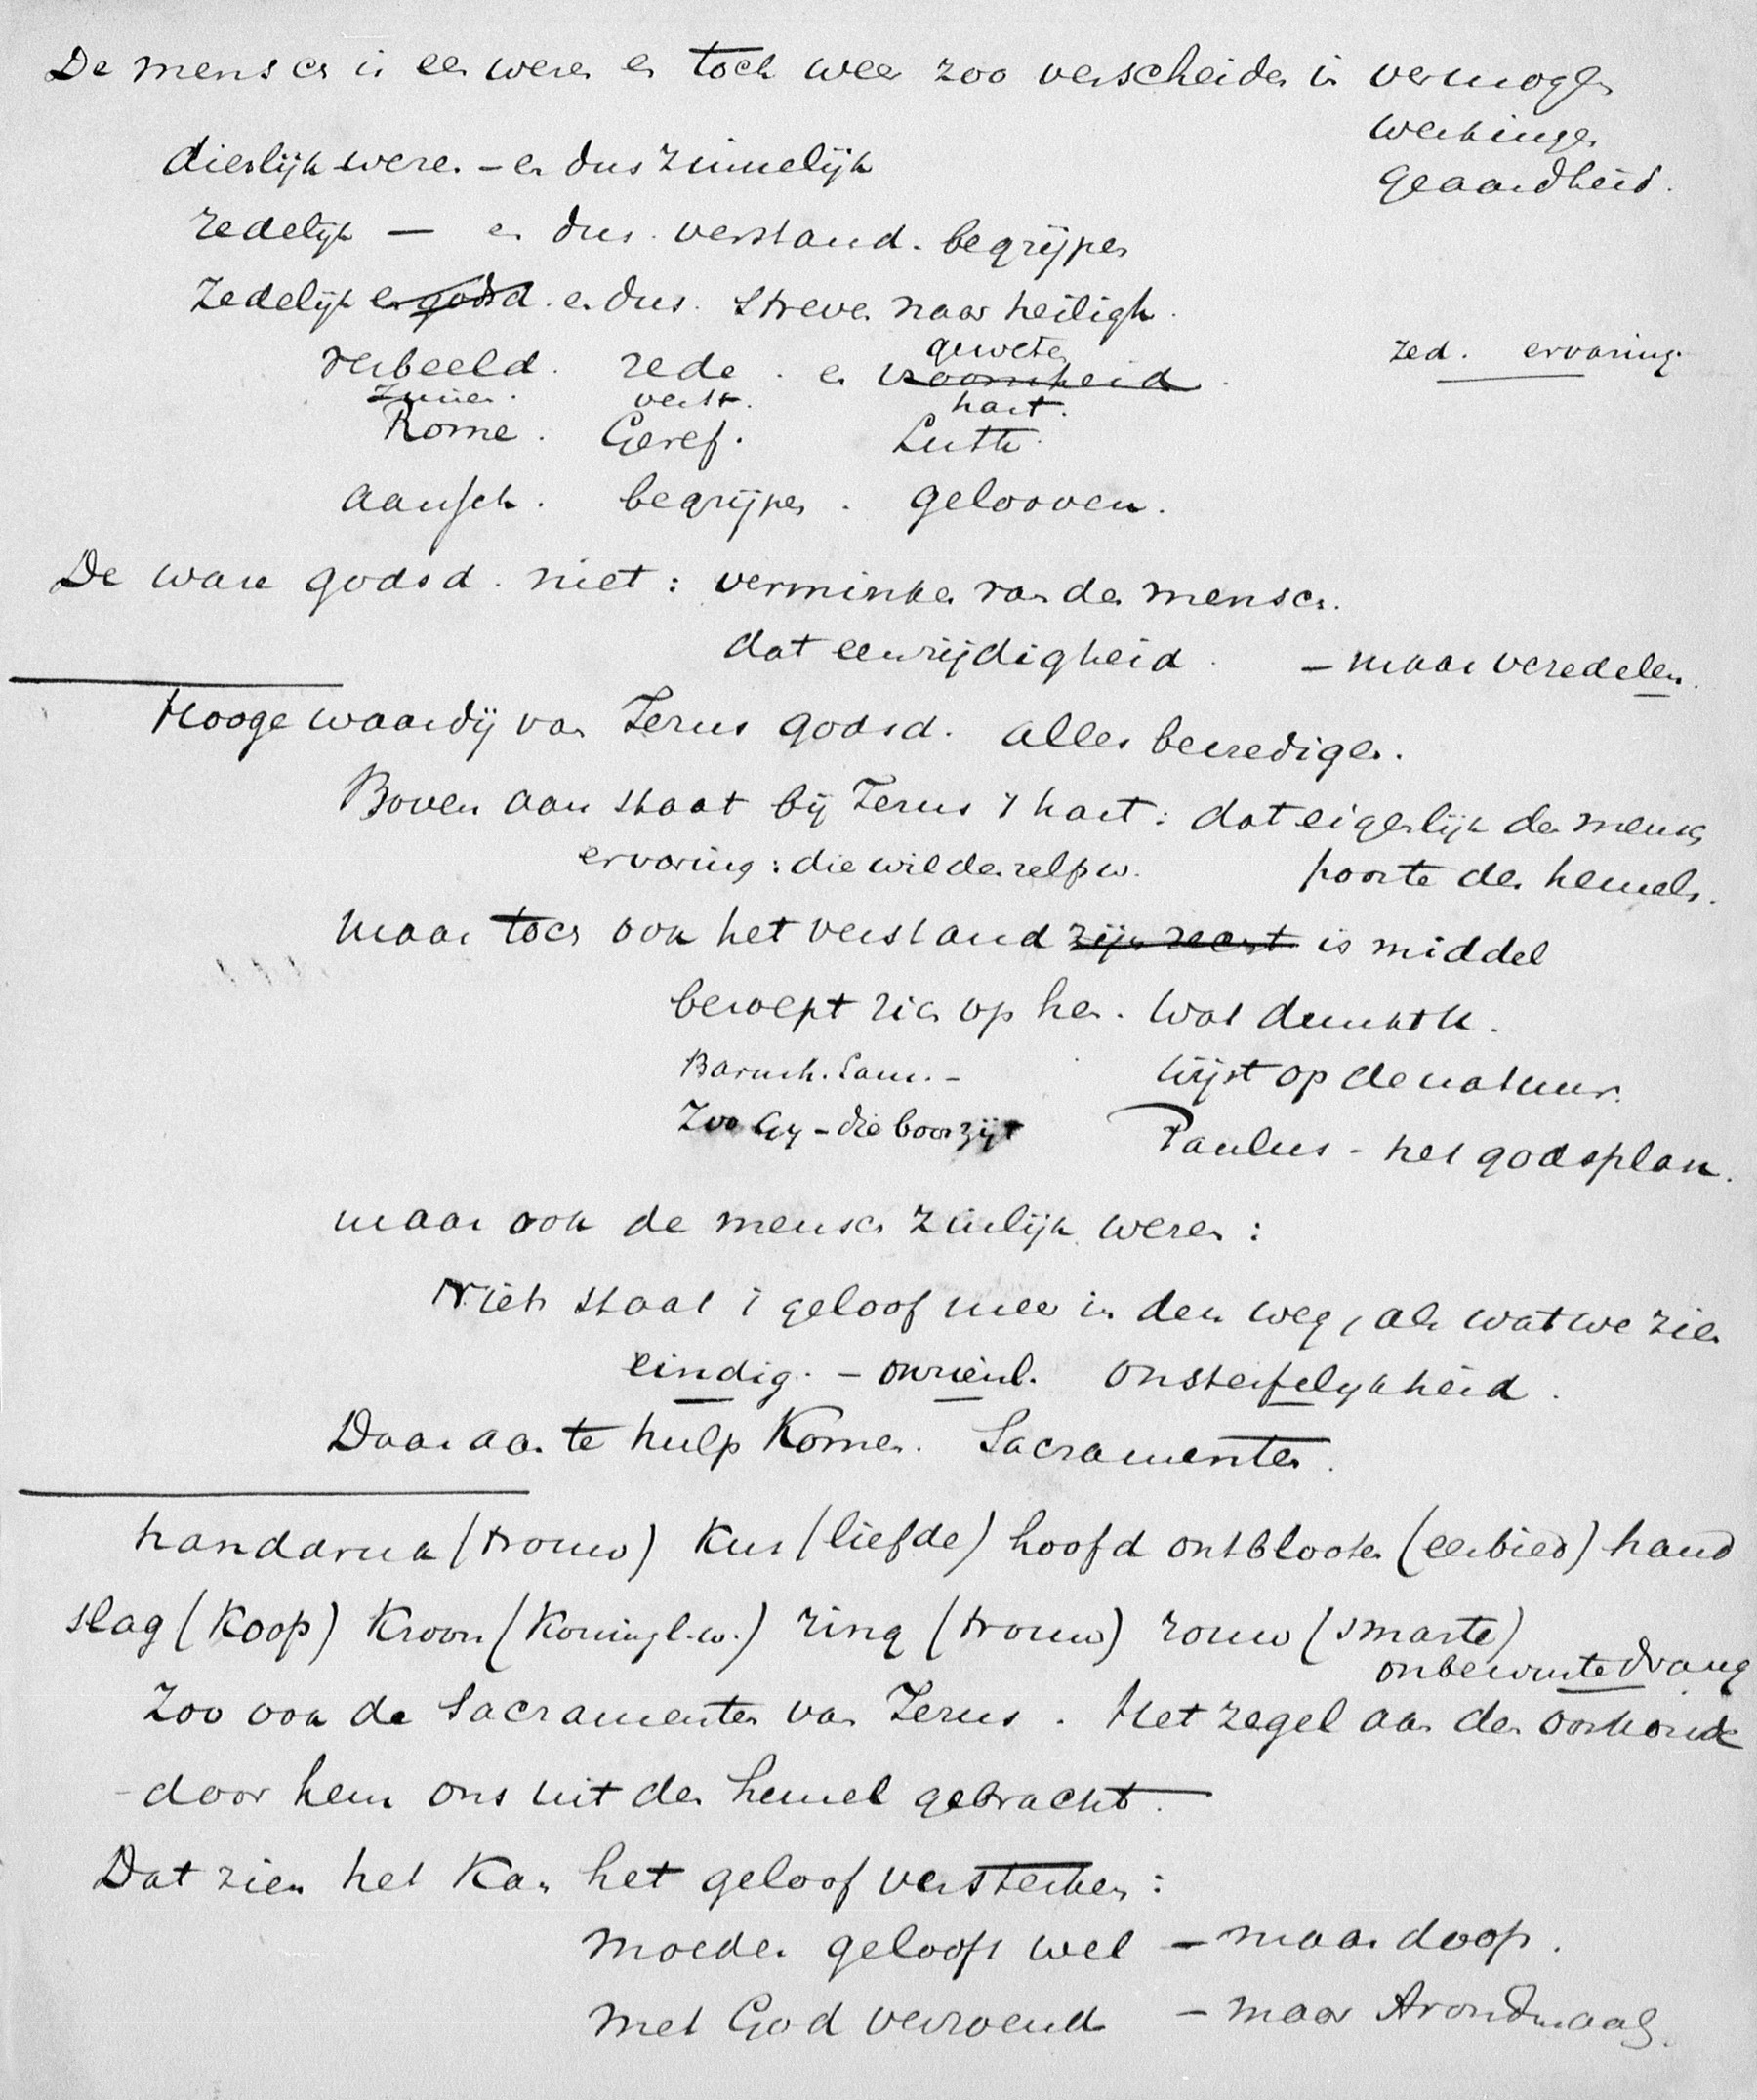 De mensch is een wezen en toch weer zoo verscheiden in vermogen
werkingen
dierlijk wezen - en dus zinnelijk
geaardheid.
redelijk — en dus. verstand. begrijpen
zedelijk en godsd. en dus. streven naar heiligh.
geweten
verbeeld. rede. en vroomheid.
zed. ervaring.
zinnen. verst. hart.
Rome. Geref. Luth.
aansch. begrijpen. gelooven.
De ware godsd. niet: verminken van den mensch.
dat eenzijdigheid. - maar veredelen.
Hooge waardij van Jezus godsd. alles bevredigen.
Boven aan staat bij Jezus 't hart: dat eigenlijk de mensch
ervaring: die wil dezelfs w. poorte des hemels.
maar toch ook het verstand zijn recht is middel
beroept zich op hen. Wat dunkt U.
Barmh. Sam. - wijst op de natuur.
Zoo Gij - die boos zijt Paulus - het godsplan.
maar ook de mensch zinlijk wezen:
Niets staat 't geloof meer in den weg, als wat we zien
eindig. - onzienl. onsterfelijkheid.
Daaraan te hulp komen. Sacramenten.
handdruk (trouw) Kus (liefde) hoofd ontblooten (eerbied) hand
slag (Koop) Kroon (Koningl. w.) ring (trouw) rouw (smarte)
onbewuste drang
Zoo ook de Sacramenten van Jezus. Het zegel aan de oorkonde
door hem ons uit den hemel gebracht.
Dat zien het kan het geloof versterken:
moeder gelooft wel - maar doop.
met God verzoend - maar Avondmaal.